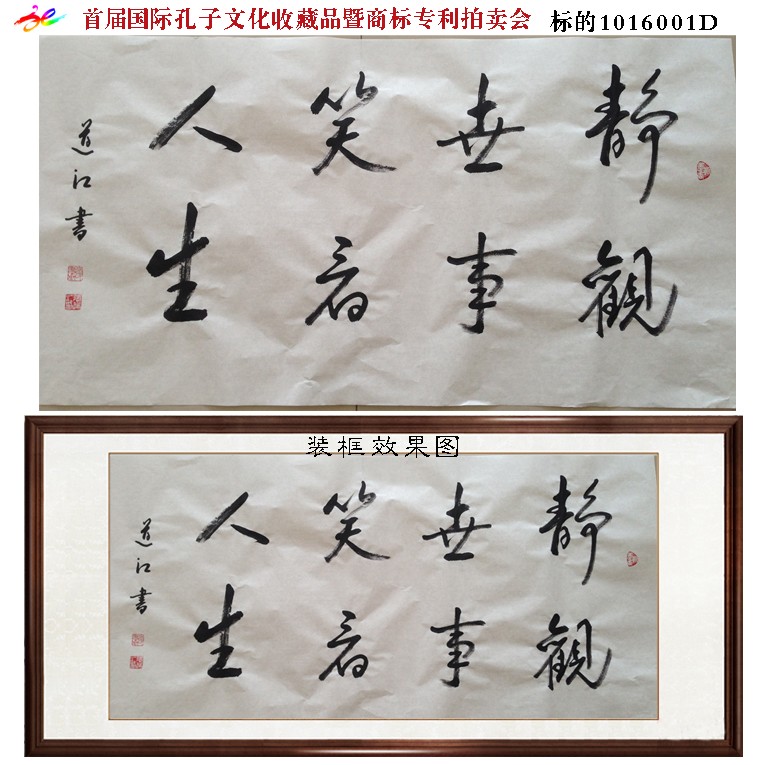 首届国际孔子文化收藏品暨商标专利拍卖会 标的1016001D
靜觀
世事
笑看
人生
道江書
装框效果图
靜觀
世事
笑看
人生
道江書